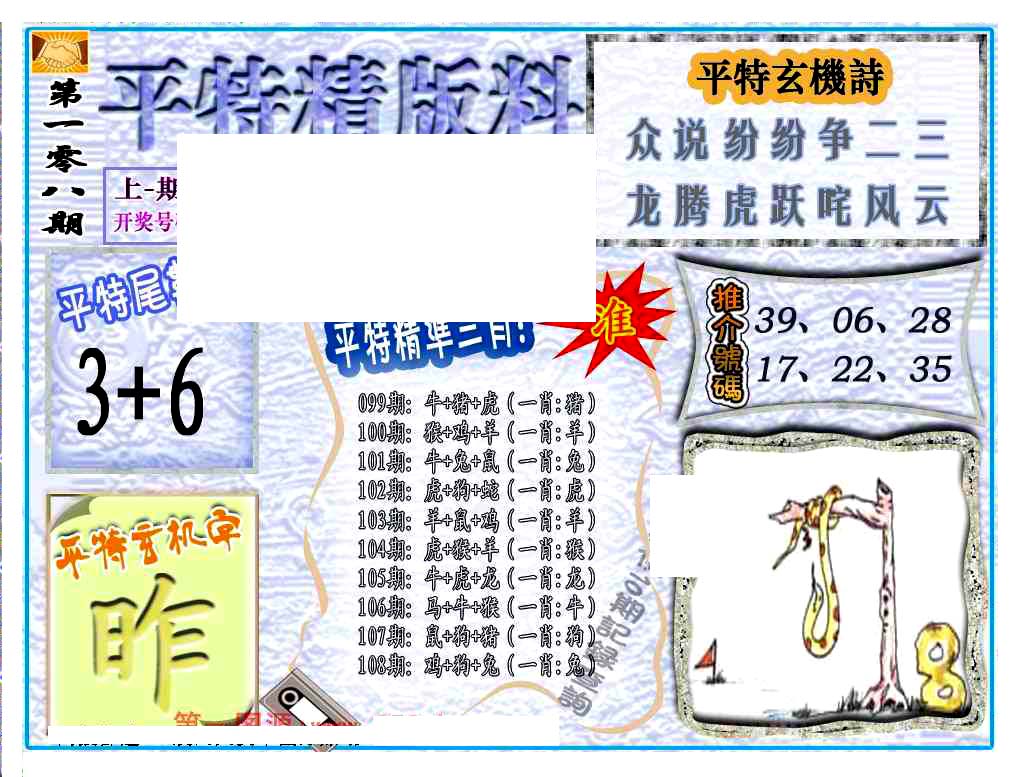 第一零八期
平特精版料
上-期
开奖号
平特玄機詩
众说纷纷争二三
龙腾虎跃咤风云
平特尾
3+6
平特精準三肖!
准
推介號碼
39、06、28
17、22、35
099期: 牛+猪+虎(一肖:猪)
100期: 猴+鸡+羊(一肖:羊)
101期: 牛+兔+鼠(一肖:兔)
102期: 虎+狗+蛇(一肖:虎)
103期: 羊+鼠+鸡(一肖:羊)
104期: 虎+猴+羊(一肖:猴)
105期: 牛+虎+龙(一肖:龙)
106期: 马+牛+猴(一肖:牛)
107期: 鼠+狗+猪(一肖:狗)
108期: 鸡+狗+兔(一肖:兔)
期記録查詢
平特玄机字
昨
8